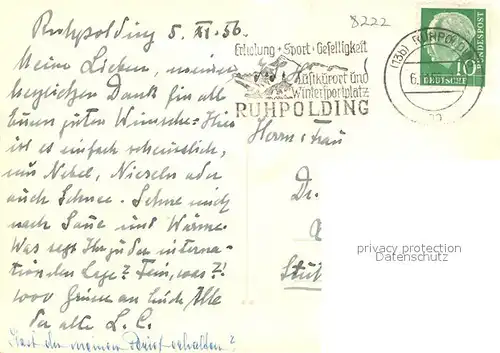 Ruhpolding 5. XI. 56.
Meine Lieben, meinen
herzlichen Dank für all
Euren guten Wünsche. Hier
ist es einfach scheusslich,
nur Nebel, Nieseln oder
auch Schnee. Sehne mich
nach Sonne und Wärme.
Was sagt Ihr zu der interna-
tionalen Lage? Fein, was?!
1000 Grüsse an Euch Alle
Die alte L. C.
Hast du meinen Brief erhalten?
8222
Erholung · Sport · Geselligkeit
Luftkurort und
Wintersportplatz
RUHPOLDING
(13b) RUHPOLDING
6.
DEUTSCHE BUNDESPOST
10
Herrn u. Frau
Dr.
Stut
privacy protection
Datenschutz